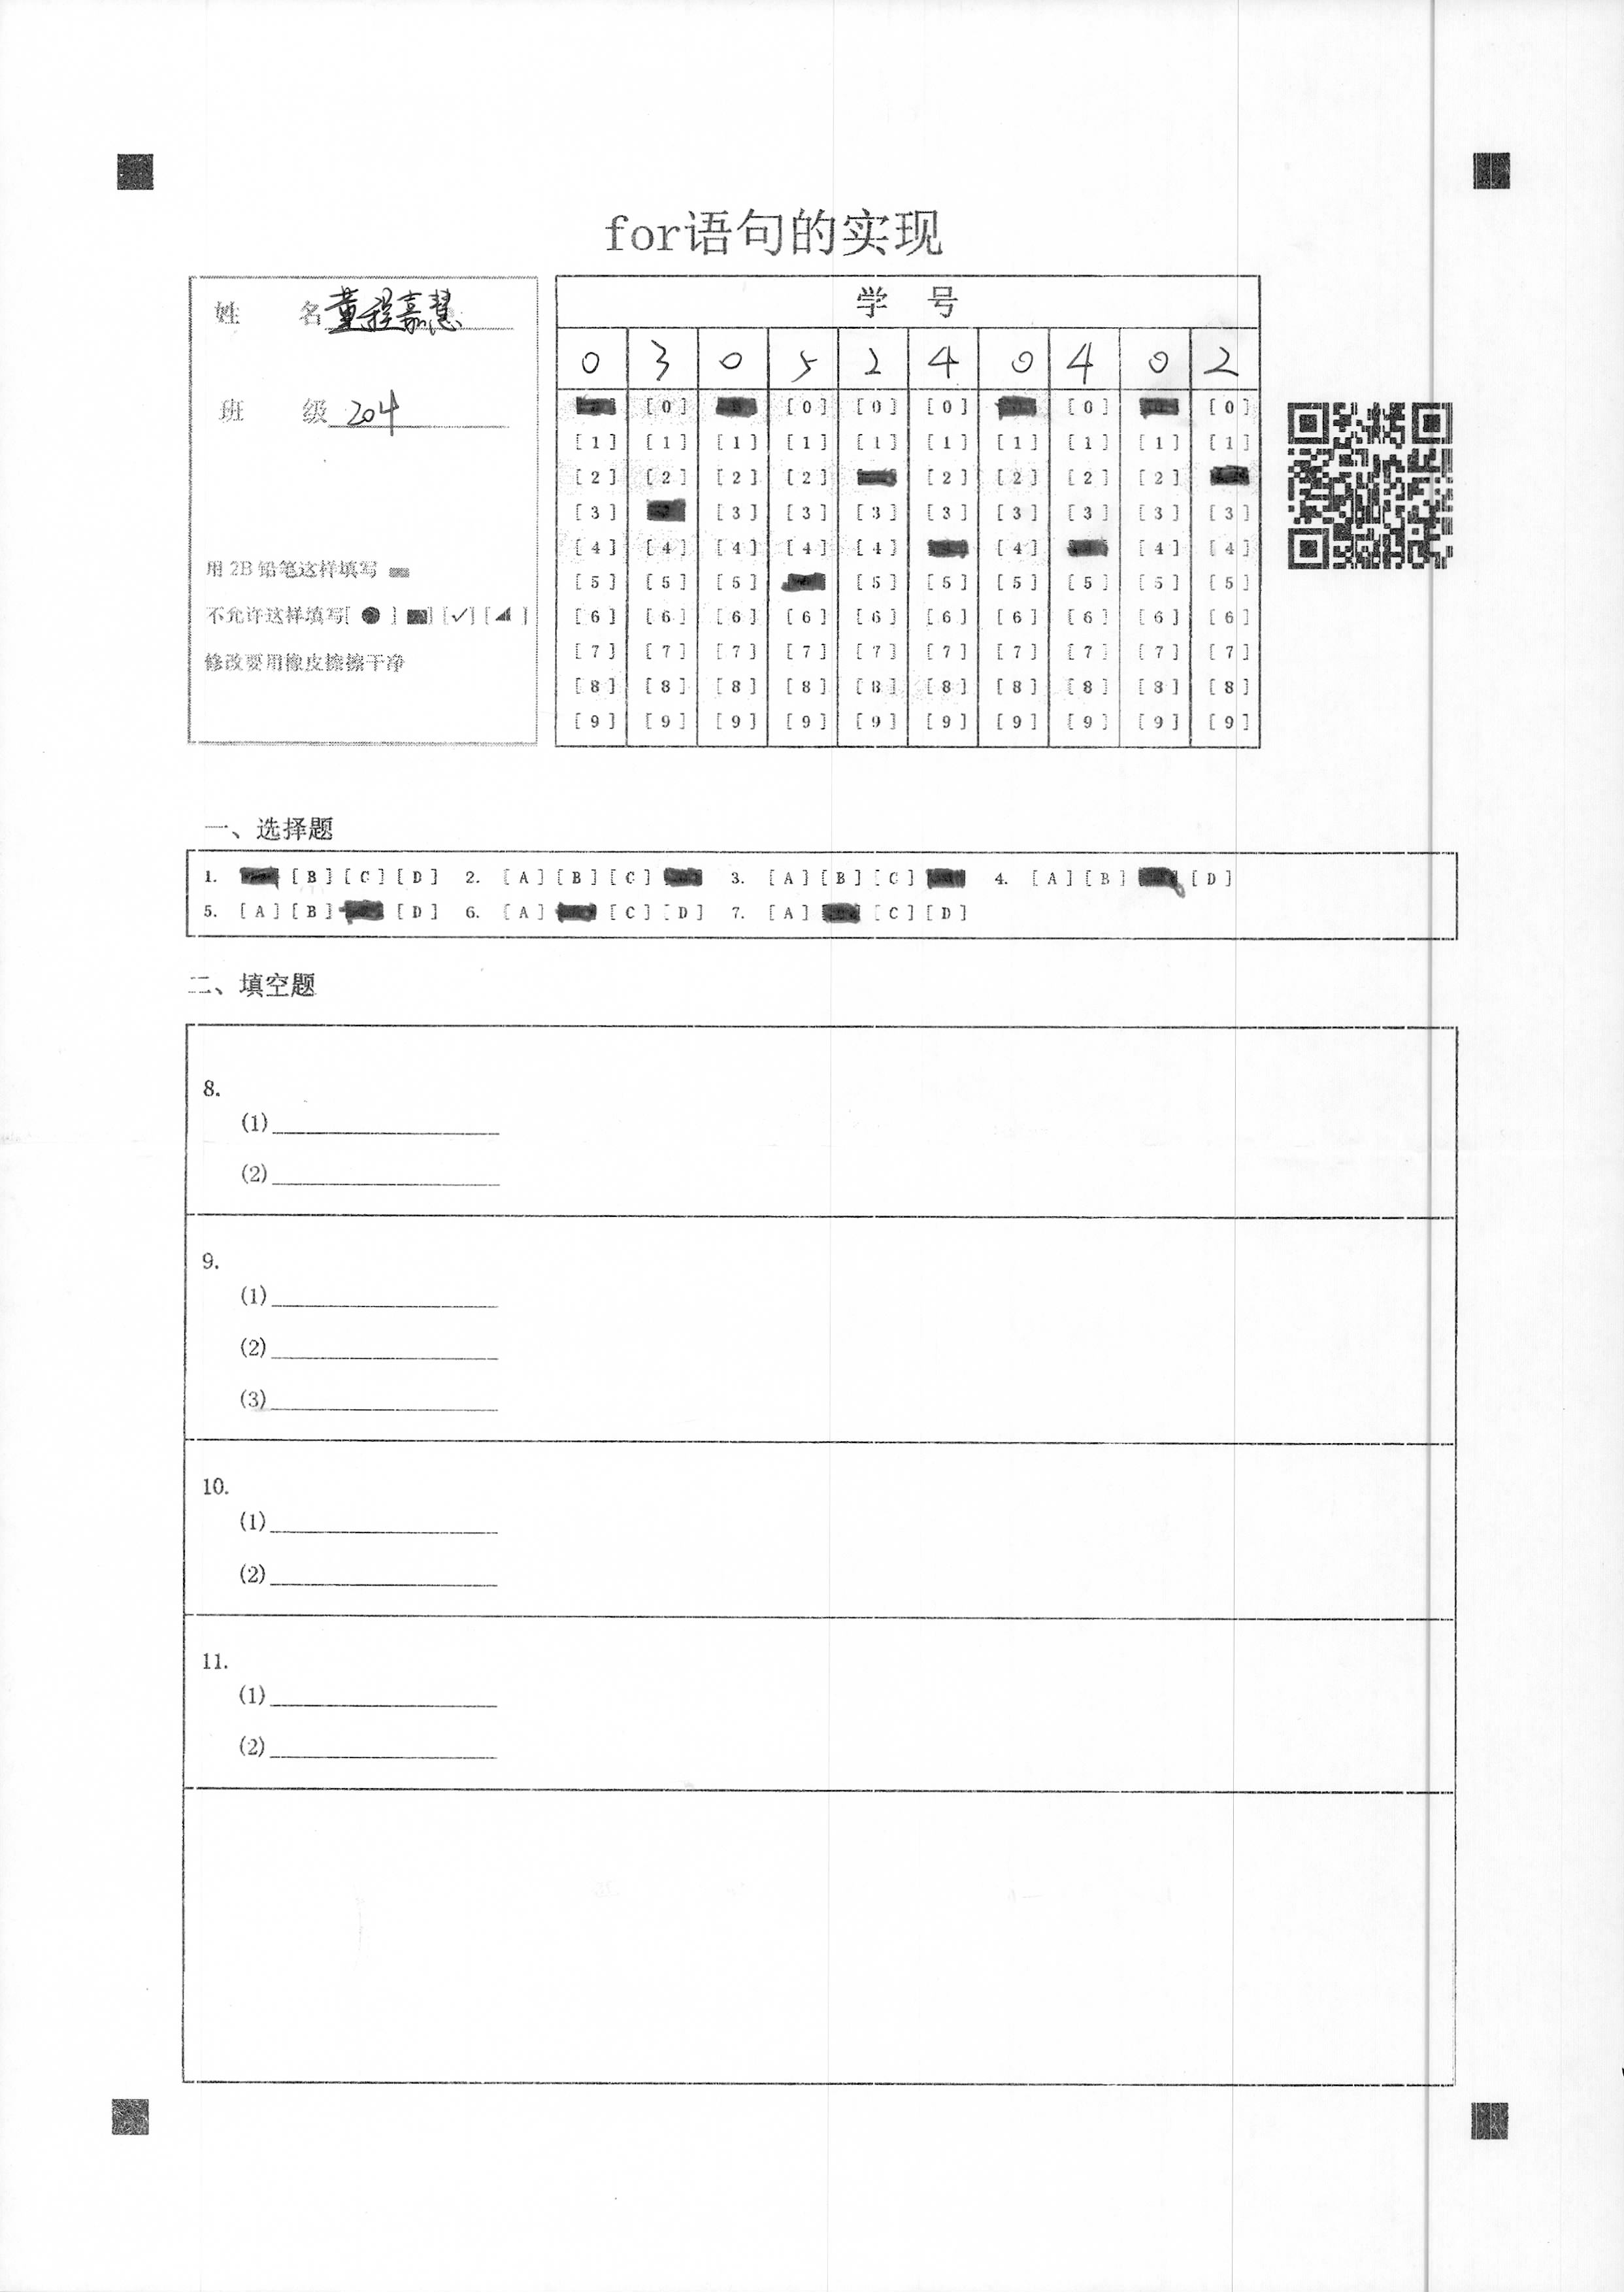 for语句的实现
姓 名 董程嘉慧
班 级 204
用 2B 铅笔这样填写
不允许这样填写[ ● ] [✓] [ ]
修改要用橡皮擦擦干净
学 号
0 3 0 5 2 4 0 4 0 2
[0] [0] [0] [0] [0] [0]
[1] [1] [1] [1] [1] [1] [1] [1] [1] [1]
[2] [2] [2] [2] [2] [2] [2] [2]
[3] [3] [3] [3] [3] [3] [3] [3] [3]
[4] [4] [4] [4] [4] [4] [4] [4]
[5] [5] [5] [5] [5] [5] [5] [5] [5]
[6] [6] [6] [6] [6] [6] [6] [6] [6] [6]
[7] [7] [7] [7] [7] [7] [7] [7] [7] [7]
[8] [8] [8] [8] [8] [8] [8] [8] [8] [8]
[9] [9] [9] [9] [9] [9] [9] [9] [9] [9]
一、选择题
1. [B] [C] [D] 2. [A] [B] [C] 3. [A] [B] [C] 4. [A] [B] [D]
5. [A] [B] [D] 6. [A] [C] [D] 7. [A] [C] [D]
二、填空题
8.
(1)
(2)
9.
(1)
(2)
(3)
10.
(1)
(2)
11.
(1)
(2)